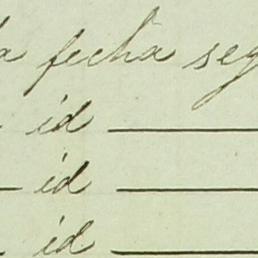 la fecha seg
id
id
id